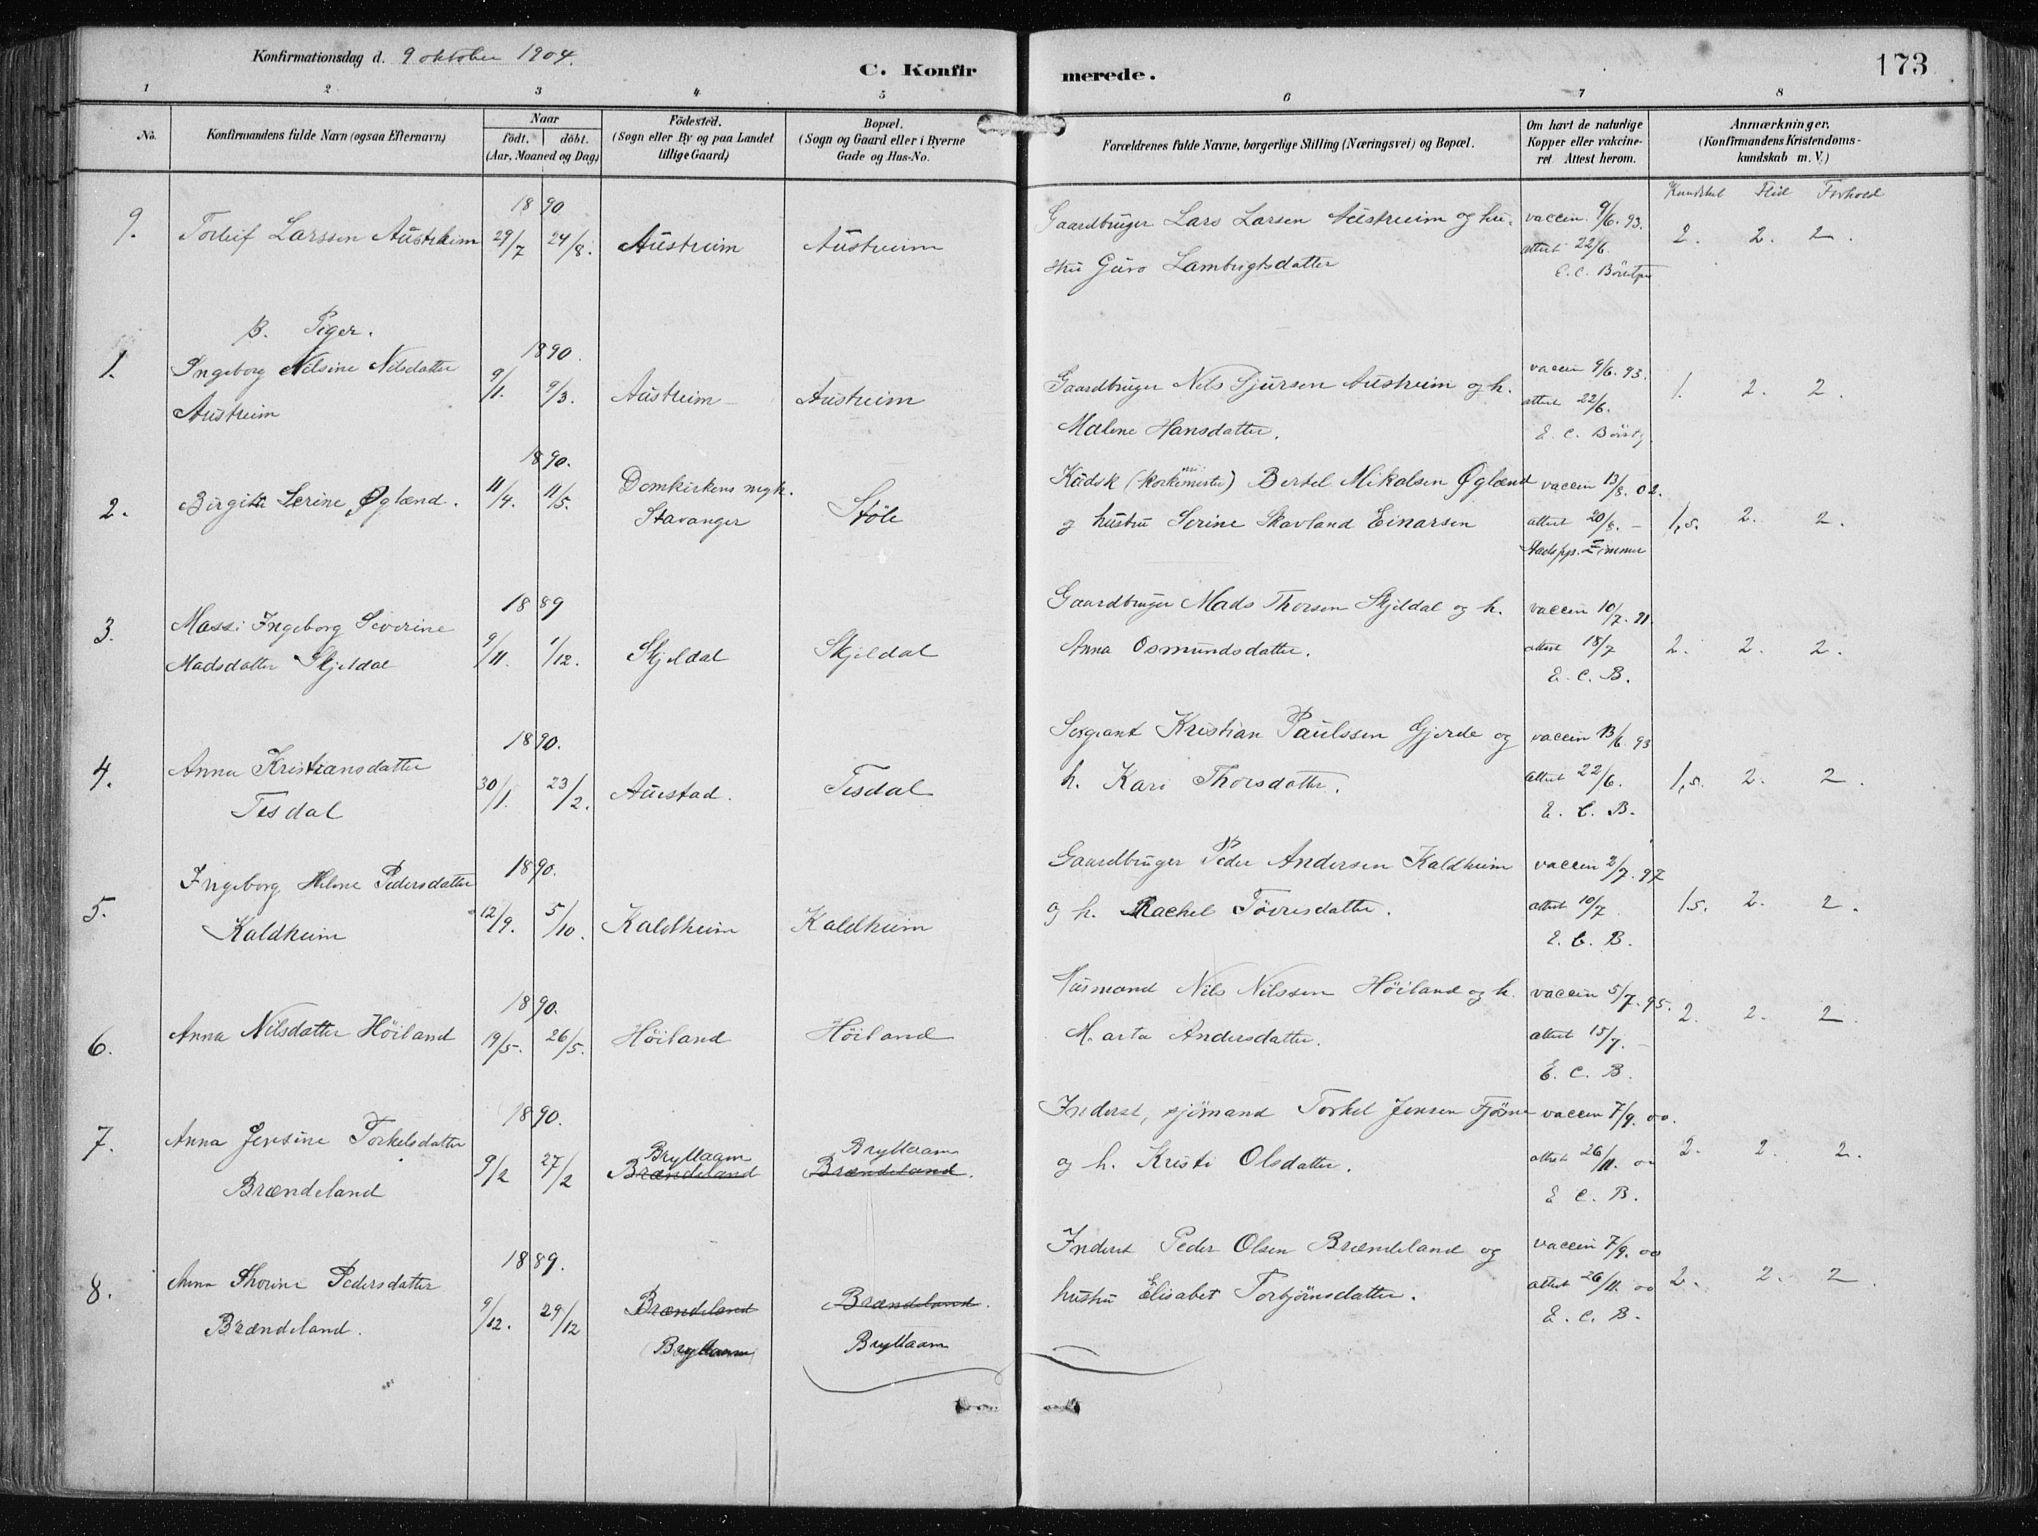 Konfirmationsdag d. 9 oktober 1904.
C. Konfirmerede.
173
1 2 3 4 5 6 7 8
No.
Konfirmandens fulde Navn (ogsaa Efternavn)
Naar
födt. döbt.
(Aar, Moaned og Dag)
Födested.
(Sogn eller By og paa Landet
tillige Gaard)
Bopæl.
(Sogn og Gaard eller i Byerne
Gade og Hus-No.
Forældrenes fulde Navne, borgerlige Stilling (Næringsvei) og Bopæl.
Om havt de naturlige
Kopper eller vakcine-
ret. Attest herom.
Anmærkninger.
(Konfirmandens Kristendoms-
kundskab m. V.)
Kundskab Flid Forhold
1890
9. Torleif Larssen Austrheim 29/7 24/8. Austreim Austreim Gaardbruger Lars Larsen Austreim og hu- vaccin. 9/6. 93. 2. 2. 2.
stru Guro Lambrigtsdatter attest 22/6.
E. C.
B. Piger.
1890.
1. Ingeborg Nilsine Nilsdatter 9/1. 9/3. Austreim Austreim Gaardbruger Nels Sjursen Austreim og h. vaccin 9/6. 93. 1. 2. 2.
Austreim Malene Hansdatter. attest 22/6.
E. C.
1890.
2. Birgitte Serine Øglænd. 11/4. 11/5. Domkirkens mgh. Stavanger Støle Bertel Mikalsen Øglænd vaccin 13/8. 02.
og hustru Serine Skavland Einarsen attest 20/8. - 1,5. 2. 2.
Zimmer
1889
3. Massi Ingeborg Severine 9/11. 1/12. Skjeldal Skjeldal Gaardbruger Mads Thorsen Skjeldal og h. vaccin 10/7. 91.
Madsdatter Skjeldal Anna Osmundsdatter. attest 18/7 2. 2. 2.
E. C. B.
1890.
4. Anna Kristiansdatter 30/1. 23/2. Auestad. Tesdal Sergeant Kristian Paulssen Gjerde og vaccin 13/6. 93
Tesdal h. Kari Thorsdatter. attest 22/6. 1,5. 2. 2.
E. C. B.
1890.
5. Ingeborg Helene Pedersdatter 12/9. 5/10. Kaldheim Kaldheim Gaardbruger Peder Andersen Kaldheim vaccin 2/7. 97
Kaldheim og h. Rachel Tøvresdatter. attest 10/7 1.5. 2. 2.
E. C. B.
1890.
6. Anna Nilsdatter Höiland 19/5. 26/5. Höiland Höiland Husmand Nils Nilssen Höiland og h. vaccin 5/7. 95. 2. 2. 2.
Marta Andersdatter. attest 15/7. -
E. C. B.
1890.
7. Anna Jensine Torkelsdatter 9/2 27/2 Bryllaam Brændeland Bryllaam Brændeland. Inderst, sjömand Torkel Jensen Fjøsne vaccin 7/9. 00.
Brændeland og h. Kristi Olsdatter. attest 26/11. 00 2. 2. 2.
E. C. B.
1889.
8. Anna Thorine Pedersdatter 9/12. 29/12 Brændeland Bryllaam Brændeland. Bryllaam Inderst Peder Olsen Brændeland og vaccin 7/9. 00
Brændeland. hustru Elisabet Torbjörnsdatter. attest 26/11. 00 2. 2. 2
E. C. B.